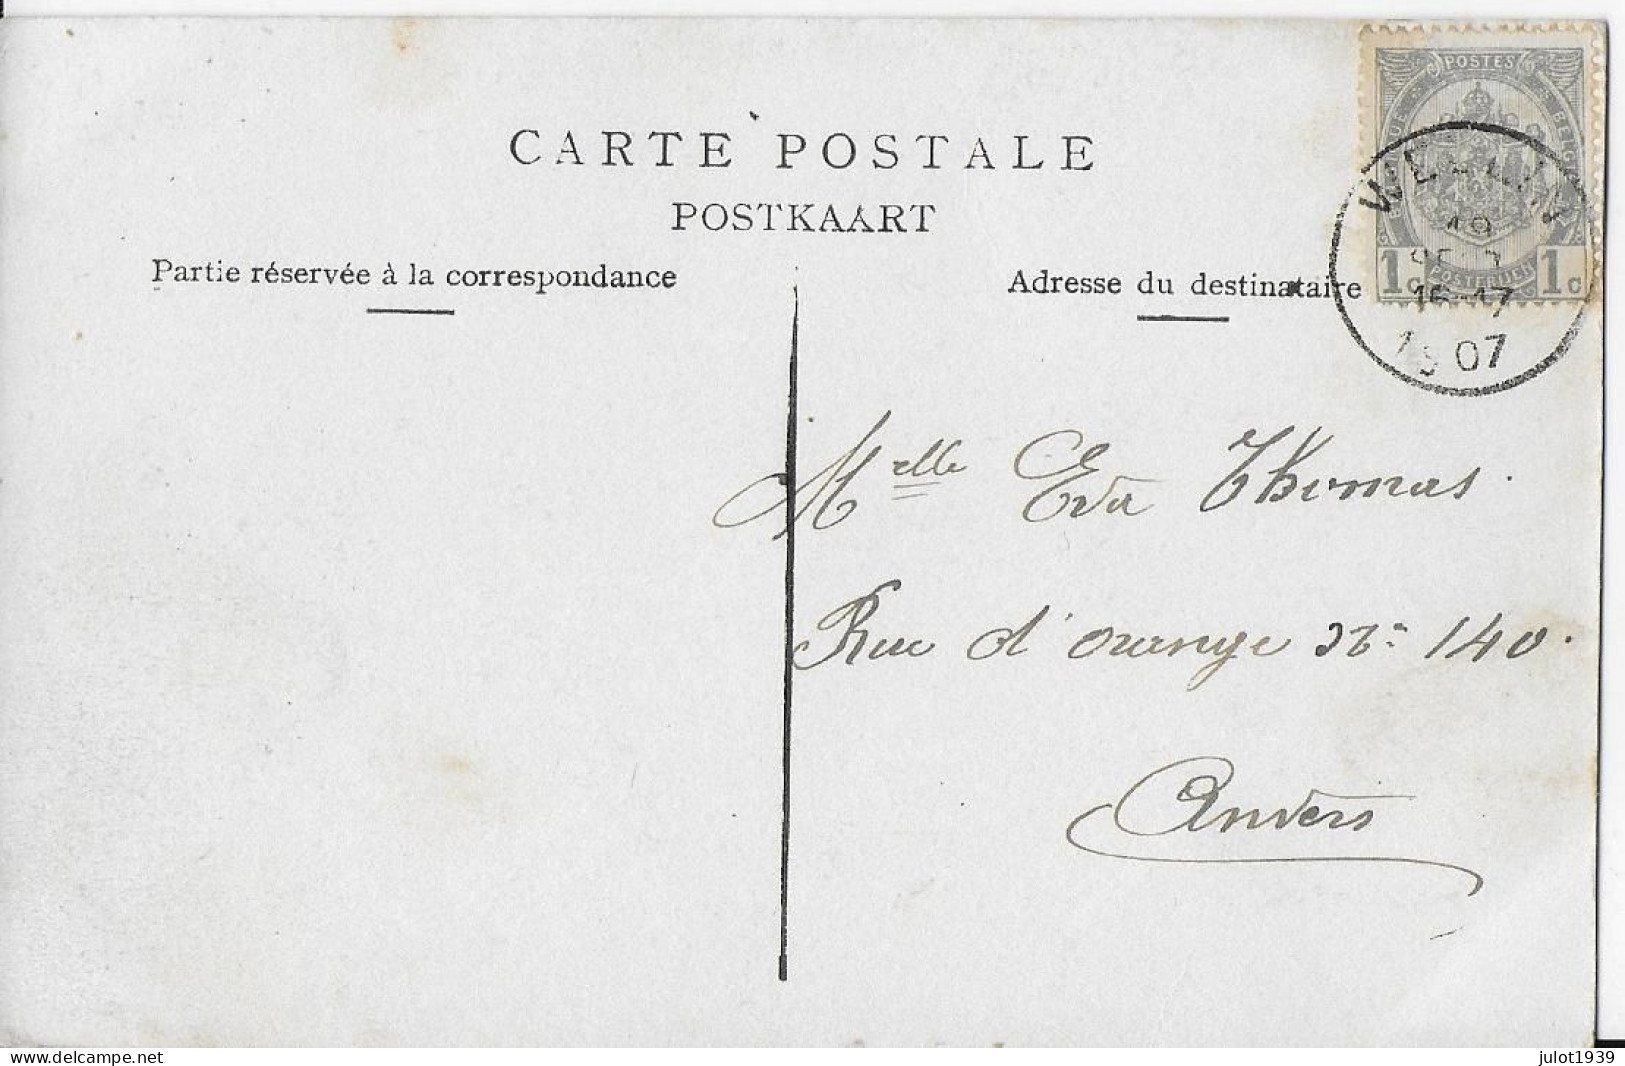 POSTES
BELGIQUE
CARTE POSTALE
WELLIN
POSTKAART
19
Partie réservée à la correspondance
Adresse du destinataire
1c POSTERIJEN 1c
16-17
1907
Melle Eva Thomas.
Rue d'orange No 140.
Anvers
www.delcampe.net
julot1939